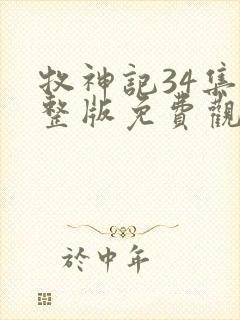 牧神記34集
整版免費觀
於中年